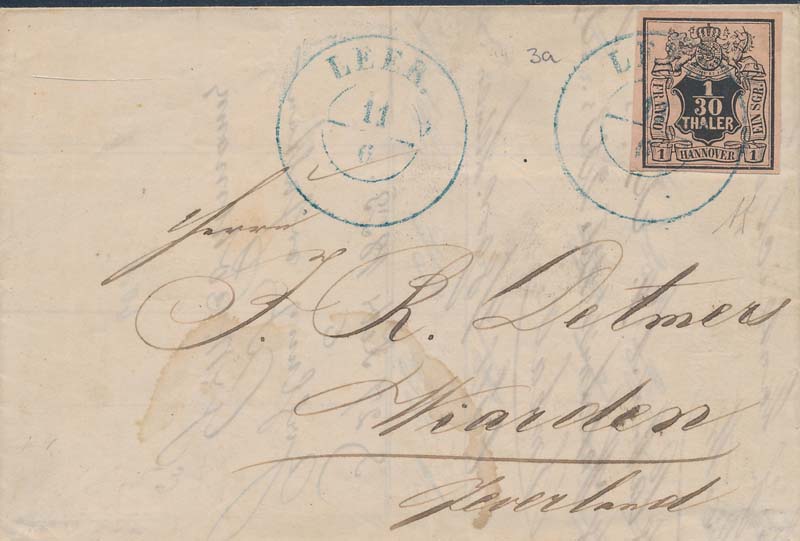 LEER.
11
6
3a
LEE
1
30
THALER
EIN SGR.
1 HANNOVER 1
Herrn
J. R. Detmers
Wiarden
Jeverland